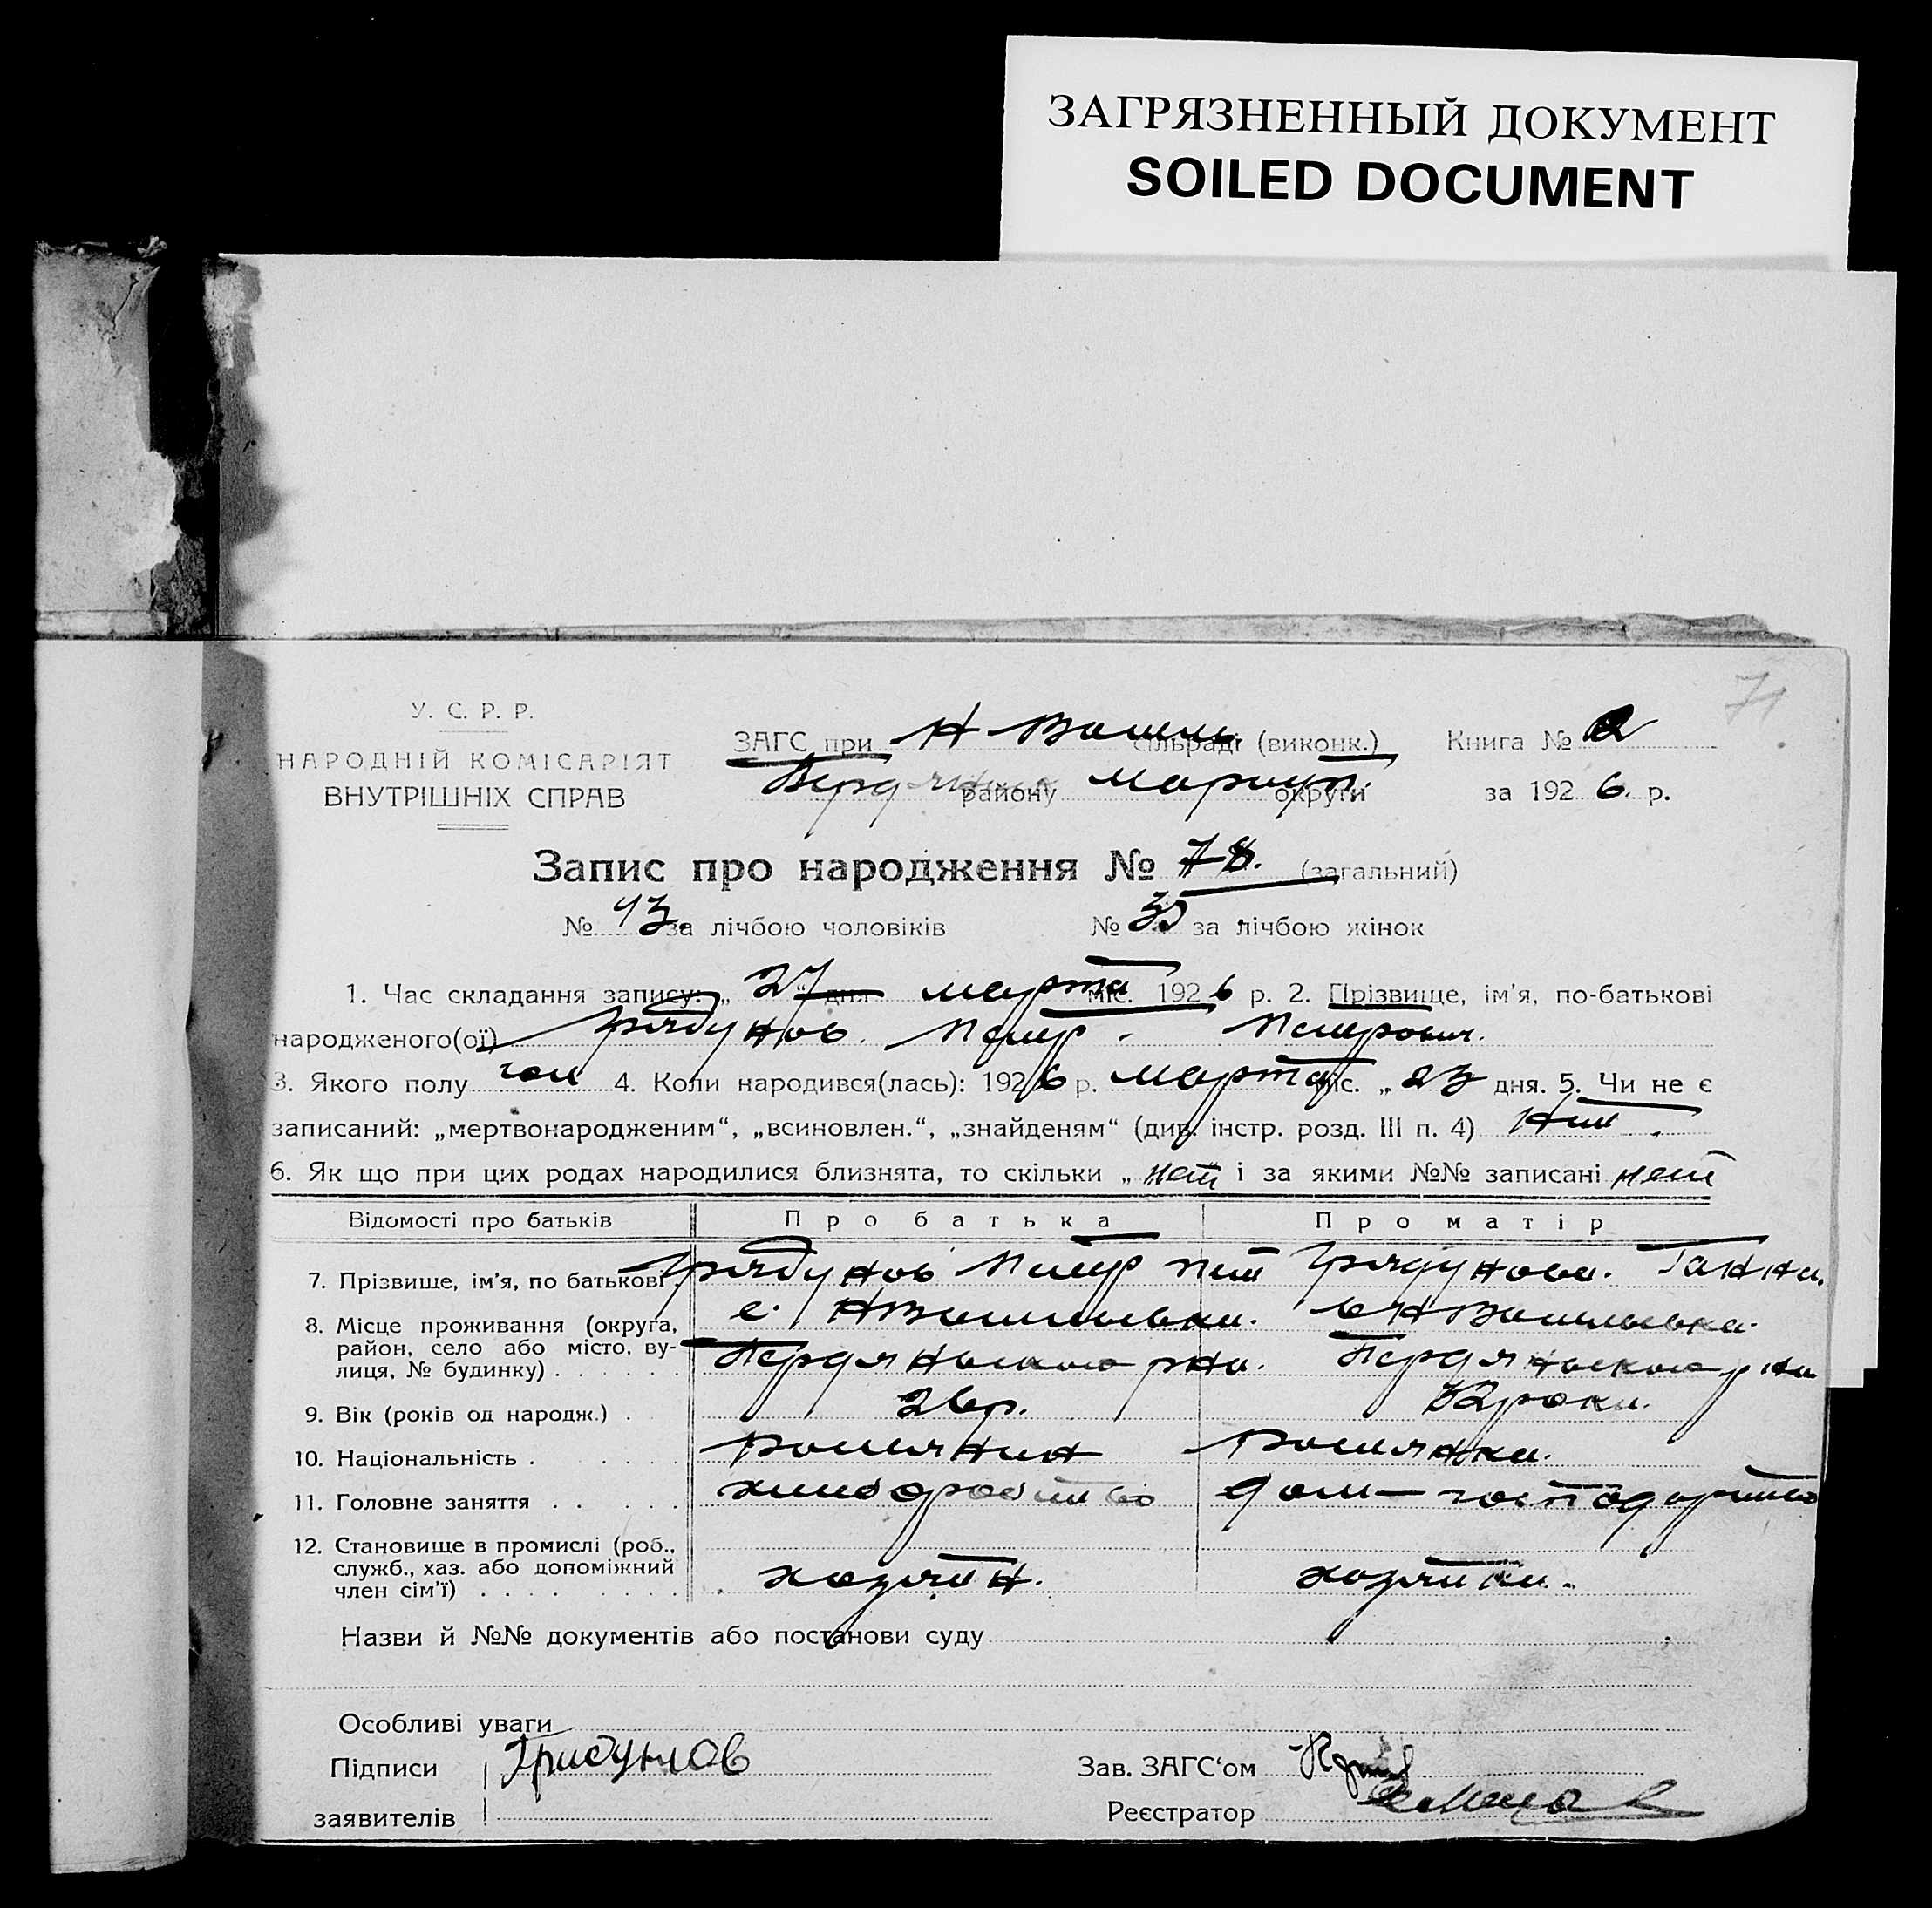 ЗАГРЯЗНЕННЫЙ ДОКУМЕНТ
SOILED DOCUMENT
71
У. С. Р. Р.
НАРОДНІЙ КОМІСАРІЯТ
ВНУТРІШНІХ СПРАВ
ЗАГС при Н Васил. сільраді (виконк.)
района Маріуп. округи
Книга № 2
за 1926 р.
Запис про народження № 78. (загальний)
№ 43 за лічбою чоловіків № 35 за лічбою жінок
1. Час складання запису: „ 27 “ дня марта міс. 1926 р. 2. Прізвище, ім'я, по-батькові
народженого(ої) Грядунов. Петр. Петрович.
3. Якого полу чол 4. Коли народився(лась): 1926 р. марта міс. „ 23 дня. 5. Чи не є
записаний: „мертвонародженим“, „всиновлен.“, „знайденям“ (див. інстр. розд. III п. 4) Нет.
6. Як що при цих родах народилися близнята, то скільки „ нет і за якими №№ записані нет
Відомості про батьків Про батька Про матір
7. Прізвище, ім'я, по батькові Грядунов Петр Пет Грядунова. Ганна.
8. Місце проживання (округа, район, село або місто, вулиця, № будинку) с. НВасильевки. с НВасильевка.
Бердянського рна. Бердянского рна
9. Вік (років од народж.) 26р. 32роки.
10. Національність росиянин росиянка.
11. Головне заняття хліборобство дом-господарство
12. Становище в промислі (роб., служб., хаз. або допоміжний член сім'ї) хозяїн. хозяйка.
Назви й №№ документів або постанови суду
Особливі уваги
Підписи Грибунов Зав. ЗАГС'ом
заявителів Реєстратор